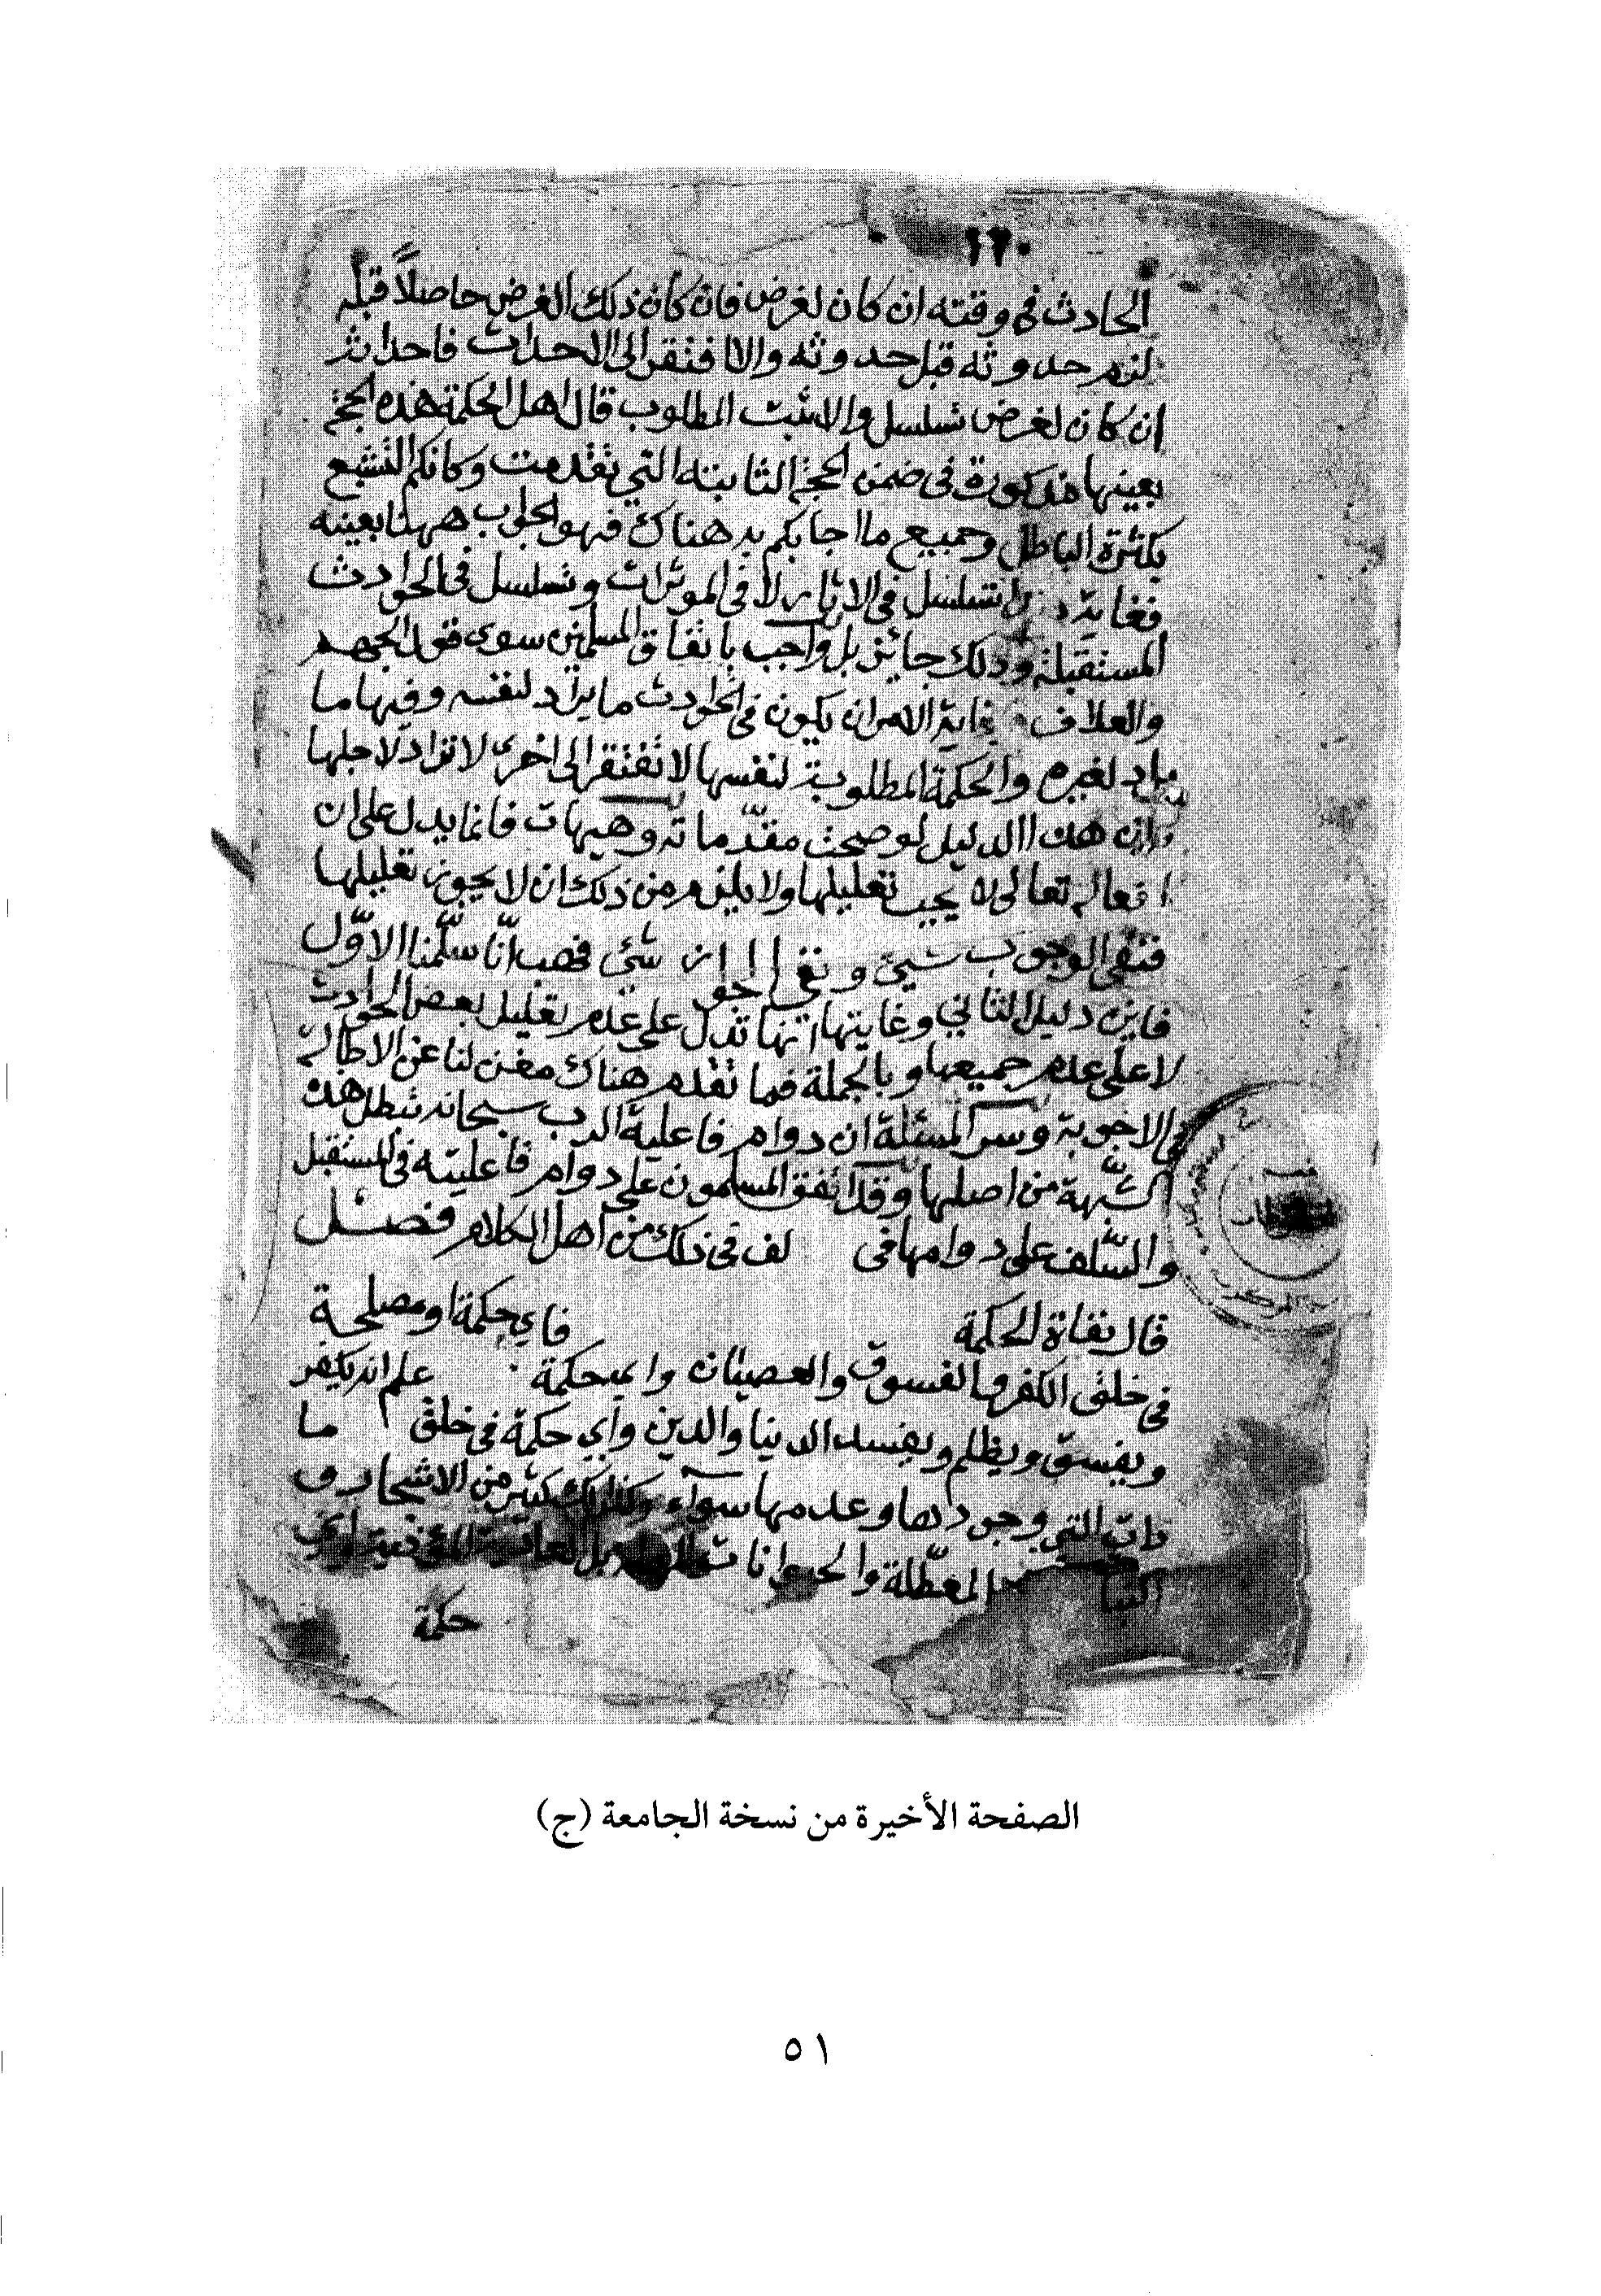 الحادث في وقته ان كان لغرض فان كان ذلك الغرض حاصلاً قبله
لزم حدوثه قبل حدوثه والا افتقر الى الاحداث فاحداثه
ان كان لغرض تسلسل والا ثبت المطلوب قال اهل الحكمة هذه الحجج
بعينها مذكورة في ضمن الحجج الثانية التي تقدمت وكانكم التشبع
بكثرة الباطل وجميع ما اجابكم به هناك فهو الجواب ههنا بعينه
فغايته تسلسل في الاثار لا في الموثرات وتسلسل في الحوادث
المستقبلة وذلك جايز بل واجب باتفاق المسلمين سوى قول الجهم
والعلاف وغاية الامر ان يكون في الحوادث ما يراد لنفسه وفيها ما
يراد لغيره والحكمة المطلوبة لنفسها لا تفتقر الى اخرى لا تراد لاجلها
وان هذا الدليل لو صحت مقدّماته وهيهات فانما يدل على ان
افعاله تعالى لا يجب تعليلها ولا يلزم من ذلك ان لا يجوز تعليلها
فنفي الوجوب شيئ ونفي الجواز شئ فهب انّا سلّمنا الاوّل
فاين دليل الثاني وغايتها انها تدل على عدم تعليل بعض الحوادث
لا على عدم جميعها وبالجملة فما تقدم هناك مغن لنا عن الاطالة
في الاجوبة وسر المسئلة ان دوام فاعلية الرب سبحانه تبطل هذه
الشّبهة من اصلها وقد اتفق المسلمون على دوام فاعليته في المستقبل
والسّلف على دوامها في لف في ذلك من اهل الكلام فصل
قال نفاة الحكمة فاي حكمة او مصلحة
في خلق الكفر والفسوق والعصيان واي حكمة علم انه يكفر
ويفسق ويظلم ويفسد الدنيا والدين واي حكمة في خلق ما
دات التي وجودها وعدمها سواء وكذلك كثير من الاشجار و
النبا المعطّلة والحيوانات
حكمة
الصفحة الأخيرة من نسخة الجامعة (ج)
٥١